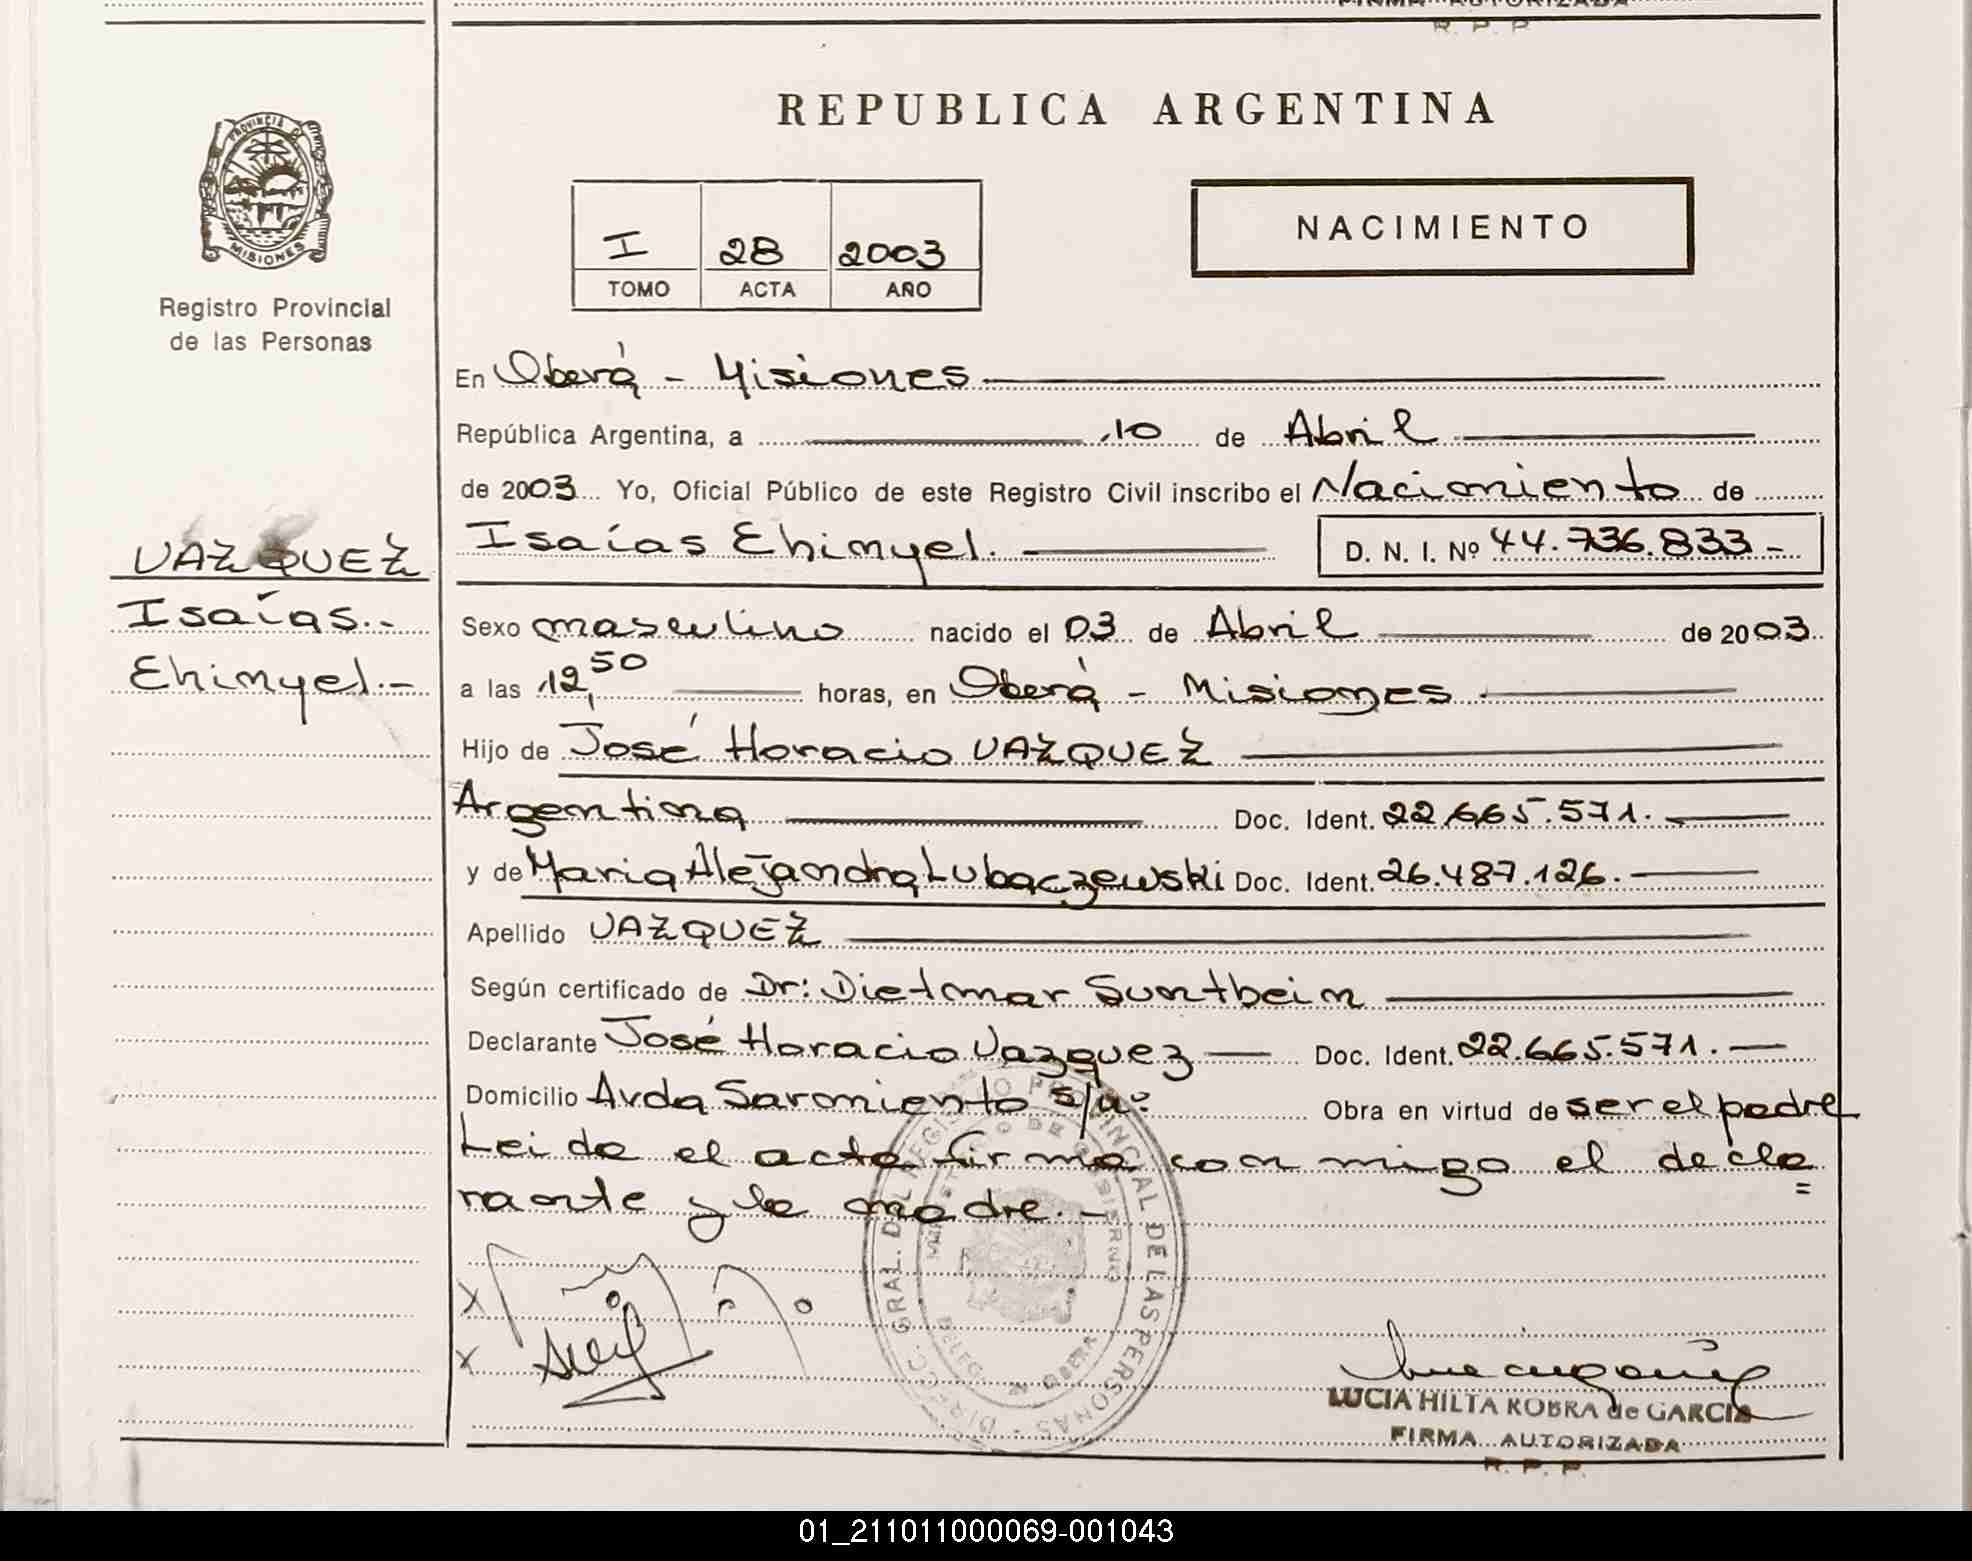 R. P. P
REPUBLICA ARGENTINA
PROVINCIA D MISIONES
Registro Provincial
de las Personas
I 28 2003
TOMO ACTA AÑO
NACIMIENTO
En Oberá - Misiones
República Argentina, a 10 de Abril
de 2003 Yo, Oficial Público de este Registro Civil inscribo el Nacimiento de
Isaías Ehimyel. D. N. I. Nº 44.736.833 -
VAZQUEZ
Isaías.-
Ehimyel.-
Sexo masculino nacido el 03 de Abril de 2003
a las 12,50 horas, en Oberá - Misiones
Hijo de José Horacio VAZQUEZ
Argentina Doc. Ident. 22.665.571.
y de Maria Alejandra Lubaczewski Doc. Ident. 26.487.126.
Apellido VAZQUEZ
Según certificado de Dr: Dietmar Suntheim
Declarante José Horacio Vazquez Doc. Ident. 22.665.571.
Domicilio Avda Sarmiento s/nº Obra en virtud de ser el padre
Leida el acta firma conmigo el decla
rante y la madre.-
DIREC. GRAL. DEL REGISTRO PROVINCIAL DE LAS PERSONAS
MINISTERIO DE GOBIERNO
DELEG. OBERA
LUCIA HILTA KOBRA de GARCIA
FIRMA AUTORIZADA
R. P. P.
01_211011000069-001043